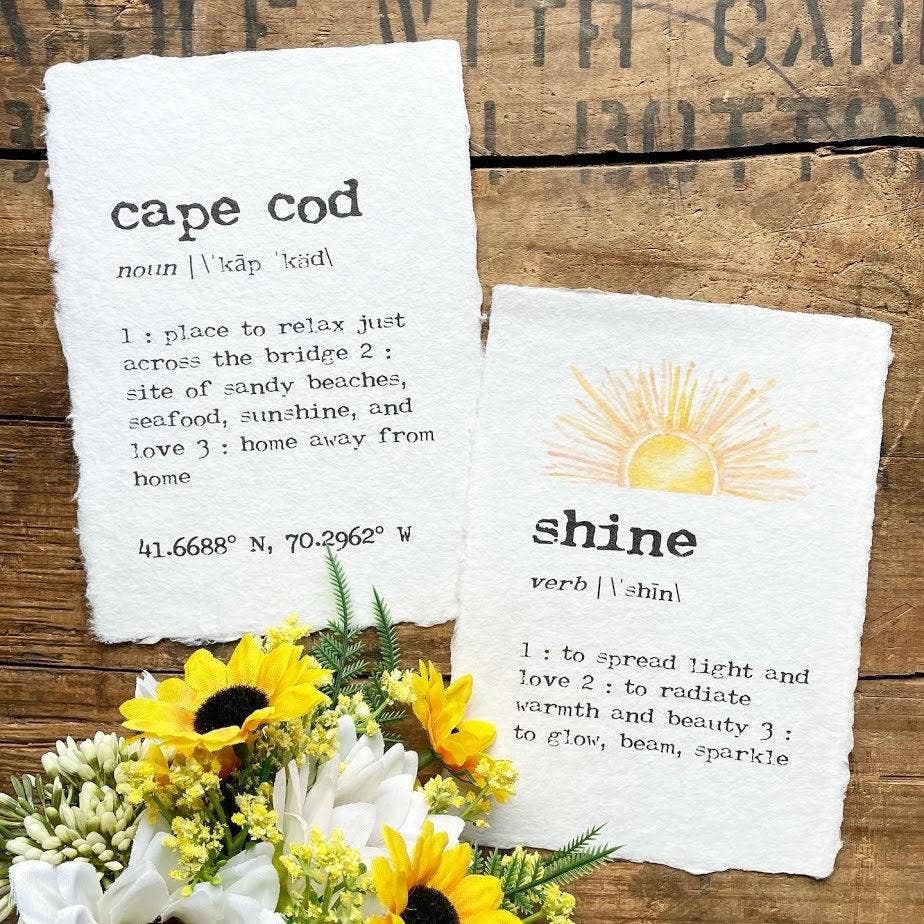 WITH CAR
BOTTO
cape cod
noun | \'kāp 'käd\
1 : place to relax just
across the bridge 2 :
site of sandy beaches,
seafood, sunshine, and
love 3 : home away from
home
41.6688° N, 70.2962° W
shine
verb | \'shīn\
1 : to spread light and
love 2 : to radiate
warmth and beauty 3 :
to glow, beam, sparkle